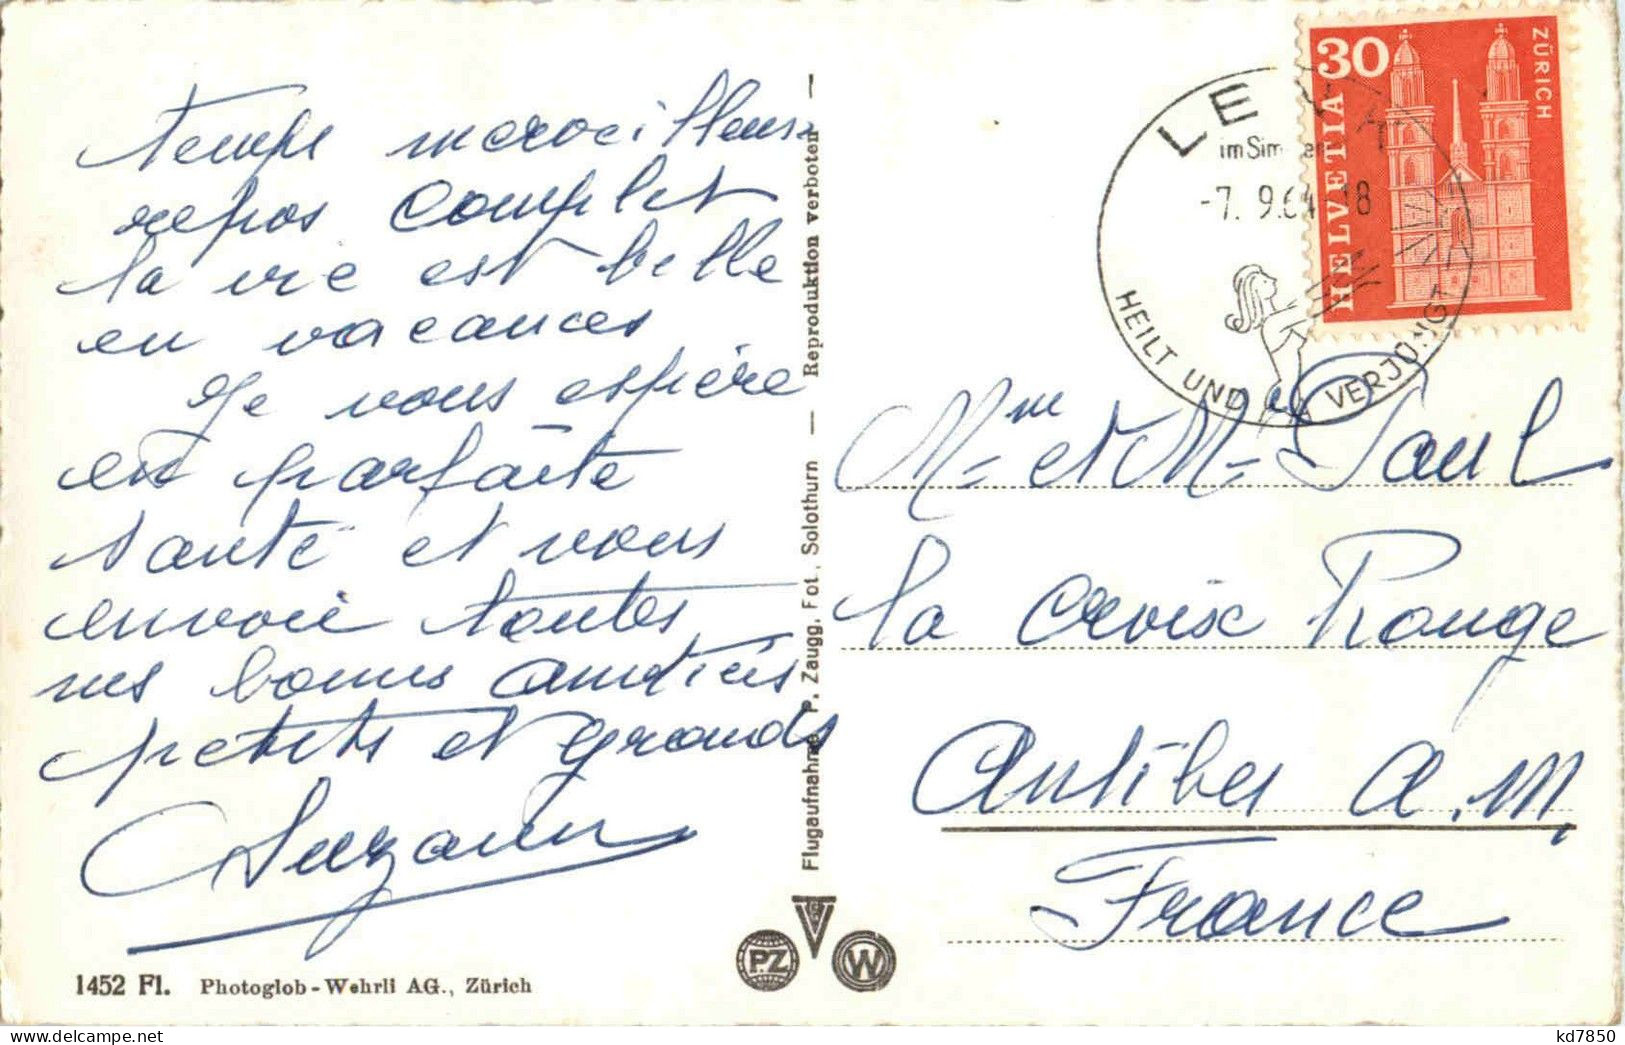 Temps merveilleux
repos complet
la vie est belle
en vacances
Je vous espère
en parfaite
santé et vous
envoie toutes
mes bonnes amitiés
petits et grands
Suzanne
1452 Fl. Photoglob-Wehrli AG., Zürich
Flugaufnahme P. Zaugg. Fot., Solothurn — Reproduktion verboten —
PZ
W
30
HELVETIA
ZÜRICH
LENK
im Sim
-7. 9.64-18
HEILT UND VERJÜNGT
Mme et M. Paul
la Croix Rouge
Antibes A.M.
France
kd7850